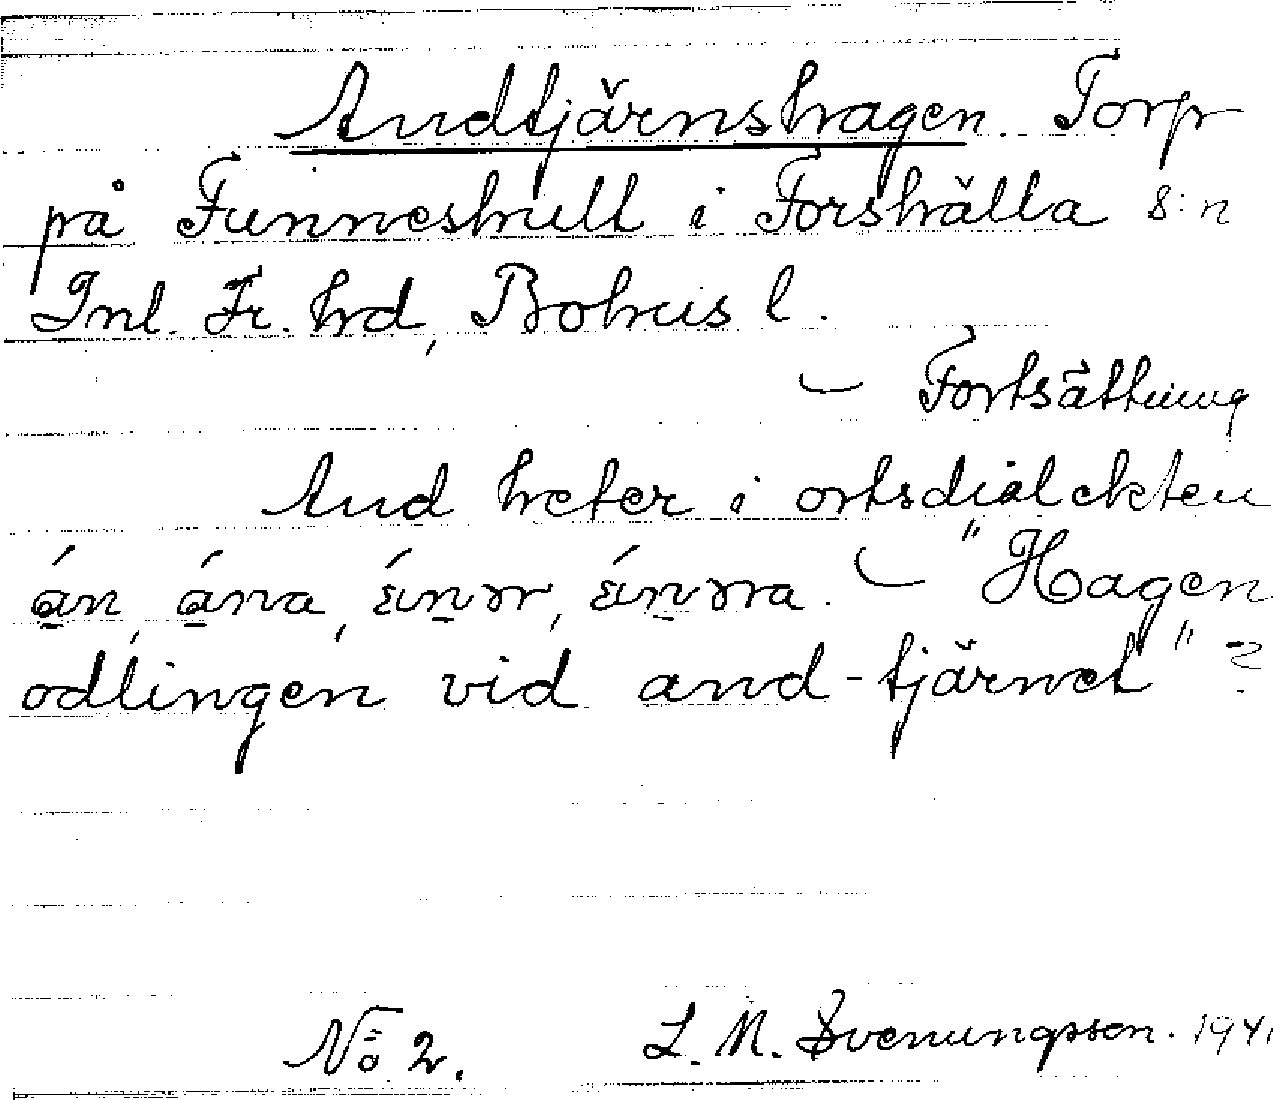 Andtjärnshagen. Torp
på Funneshult i Forshälla s:n
Inl. Fr. hd, Bohus l.
— Fortsättning
And heter i ortsdialekten
án, ána, ǽnər, ǽnəra. — "Hagen,
odlingen vid and-tjärnet" ?
No 2. L. M. Svenungsson. 1941